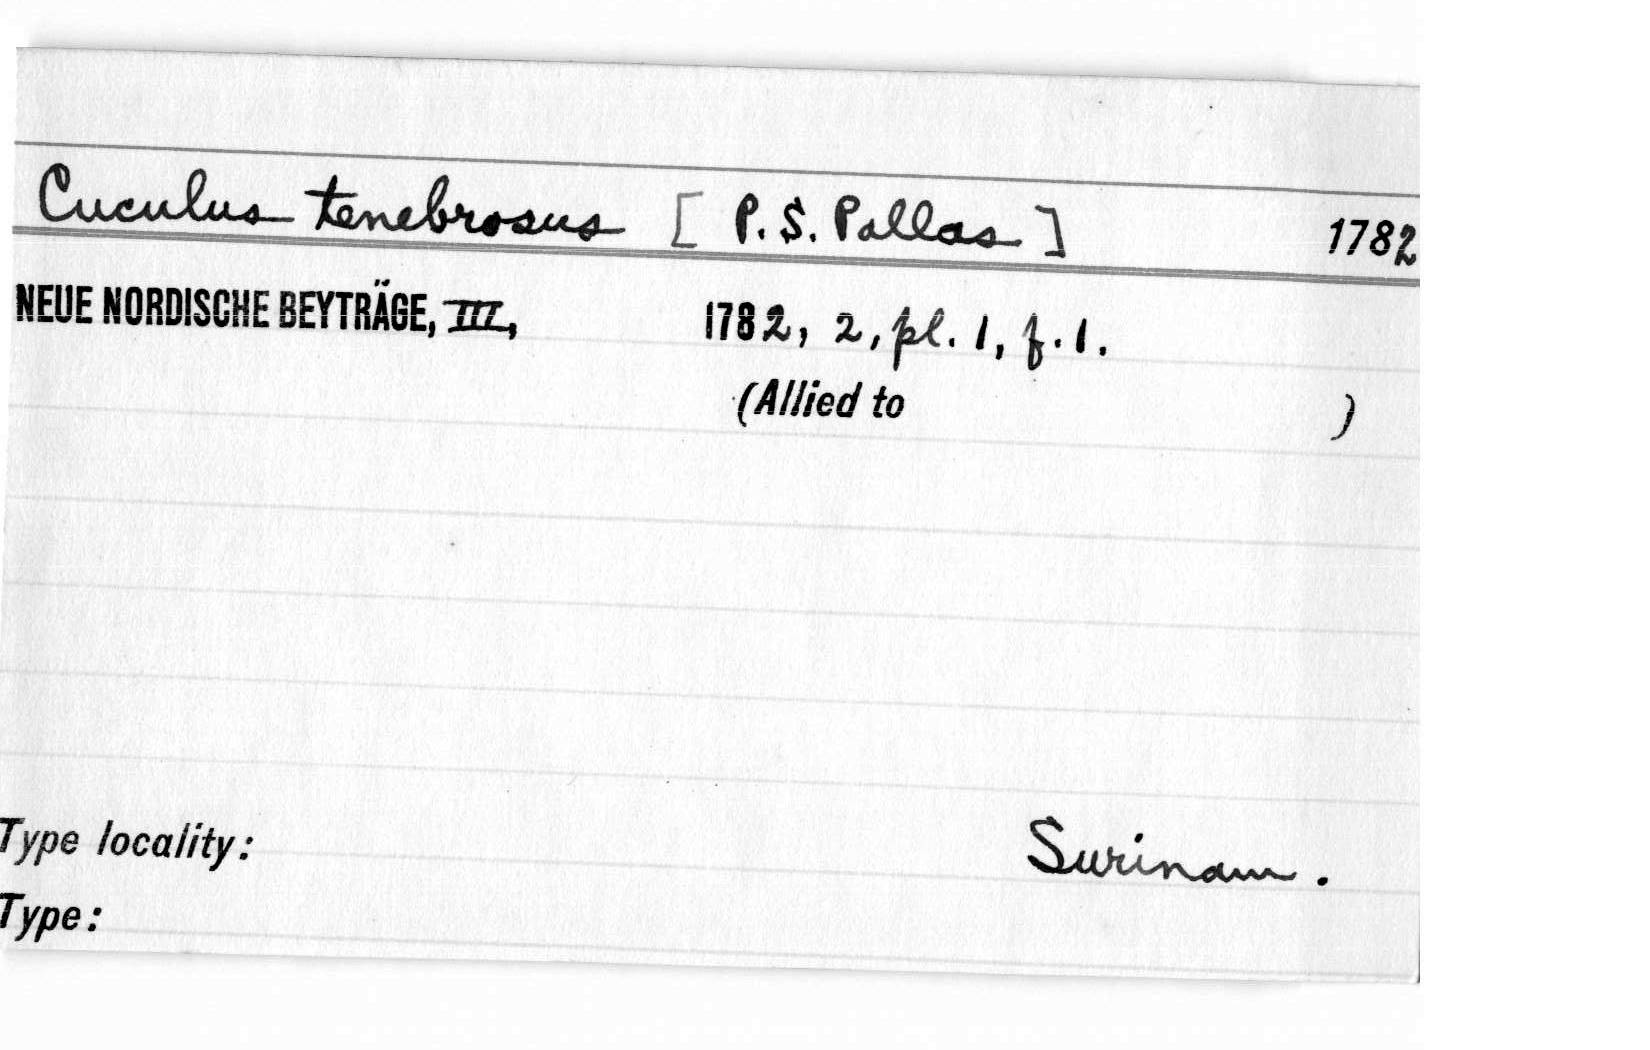 Cuculus tenebrosus [P. S. Pallas] 1782
NEUE NORDISCHE BEYTRÄGE, III, 1782, 2, pl. 1, f. 1.
(Allied to )
Type locality: Surinam.
Type: